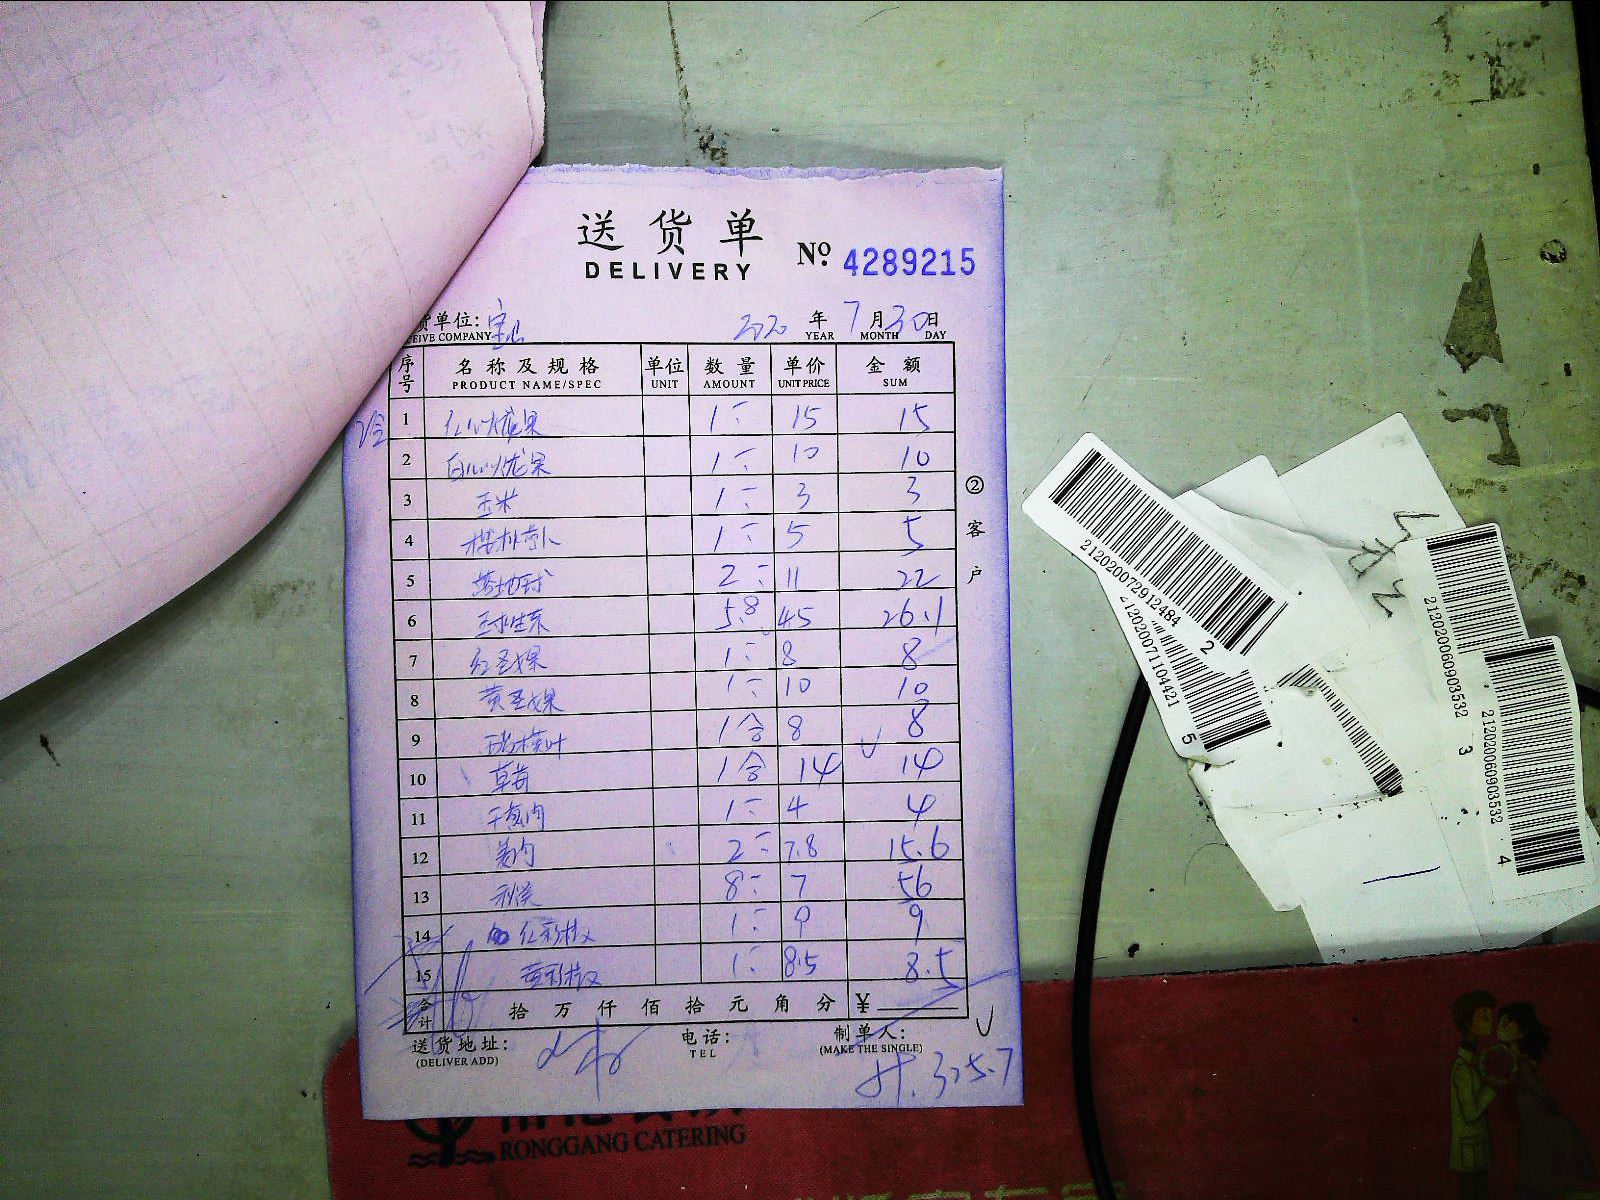 送货单
DELIVERY
№ 4289215
货单位:
EIVE COMPANY
2020 年 7 月 30 日
YEAR MONTH DAY
序号 名称及规格 单位 数量 单价 金额
PRODUCT NAME/SPEC UNIT AMOUNT UNIT PRICE SUM
1 红心火龙果 1 : 15 15
2 白心火龙果 1 : 10 10
3 玉米 1 : 3 3
4 樱桃萝卜 1 : 5 5
5 2 : 11 22
6 球生菜 5.8 45 26.1
7 红圣女果 1 : 8 8
8 黄圣女果 1 : 10 10
9 1合 8 8
10 草莓 1合 14 14
11 干葱肉 1 : 4 4
12 姜肉 2 : 7.8 15.6
13 8 : 7 56
14 红彩椒 1 : 9 9
15 黄彩椒 1 : 8.5 8.5
合计 拾万仟佰拾元角分 ¥
送货地址: 电话: 制单人:
(DELIVER ADD) TEL (MAKE THE SINGLE)
325.7
②客户
RONGGANG CATERING
212020072912484 2
2120200711104421 5
212020060903532 3
212020060903532 4